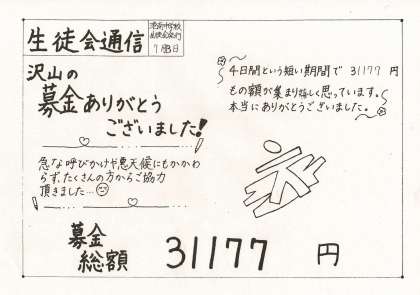 生徒会通信
港南中学校
生徒会発行
7月8日
沢山の
募金ありがとう
ございました!
急な呼びかけや悪天候にもかかわ
らず、たくさんの方からご協力
頂きました…
4日間という短い期間で 31177 円
もの額が集まり嬉しく思っています。
本当にありがとうございました。
募金
総額 31177 円